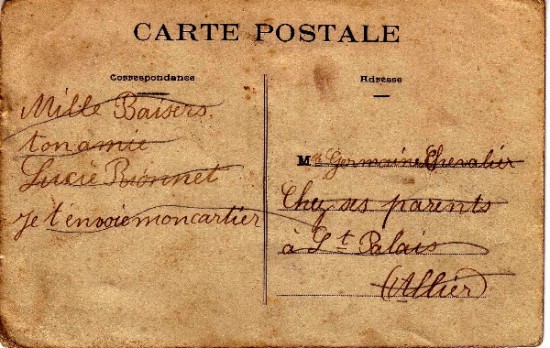 CARTE POSTALE
Correspondance
Mille Baisers
ton amie
Lucie Bonnet
je t'envoie mon cartier
Adresse
Mlle Germaine Chevalier
Chez ses parents
à St Palais
(Allier)